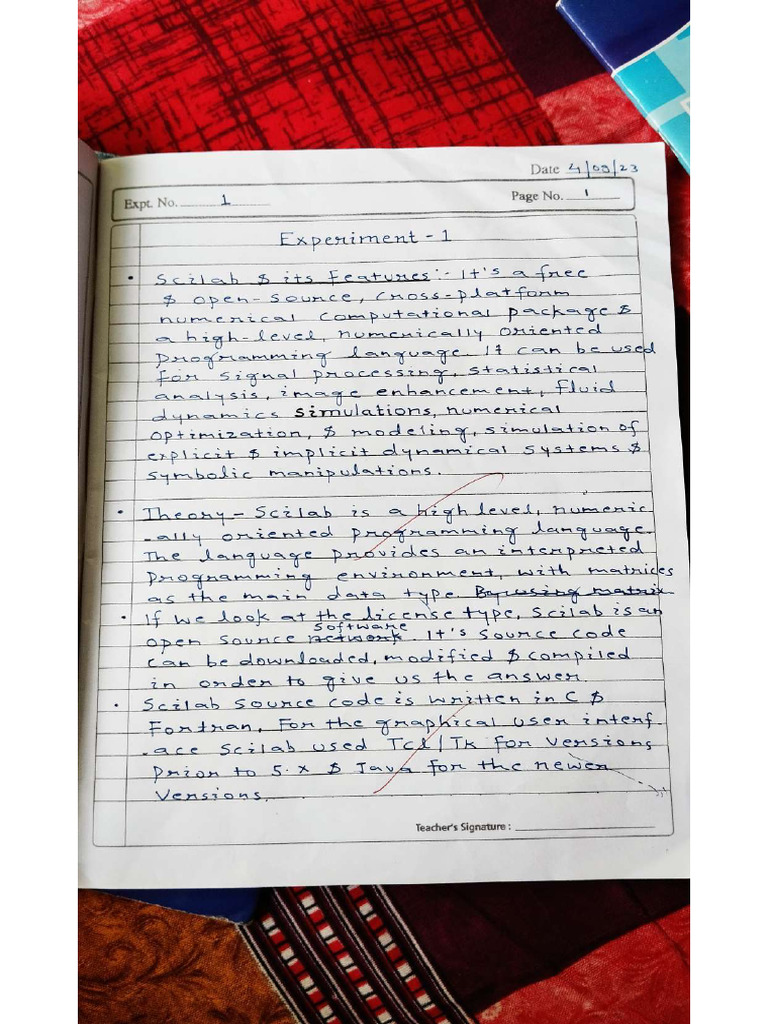 Date 4/09/23
Expt. No. 1
Page No. 1
Experiment - 1
• Scilab & its Features:- It's a free
& open-source, cross-platform
numerical computational package &
a high-level, numerically oriented
programming language. It can be used
for signal processing, statistical
analysis, image enhancement, fluid
dynamics simulations, numerical
optimization, & modeling, simulation of
explicit & implicit dynamical systems &
symbolic manipulations.
• Theory - Scilab is a high level, numeric
-ally oriented programming language.
The language provides an interpreted
programming environment, with matrices
as the main data type. By using matrix
• If we look at the license type, Scilab is an
software
open source network. It's source code
can be downloaded, modified & compiled
in order to give us the answer.
• Scilab source code is written in C &
Fortran, For the graphical user interf-
-ace Scilab used Tcl/Tk for versions
prior to 5.x & Java for the newer
versions.
Teacher's Signature :